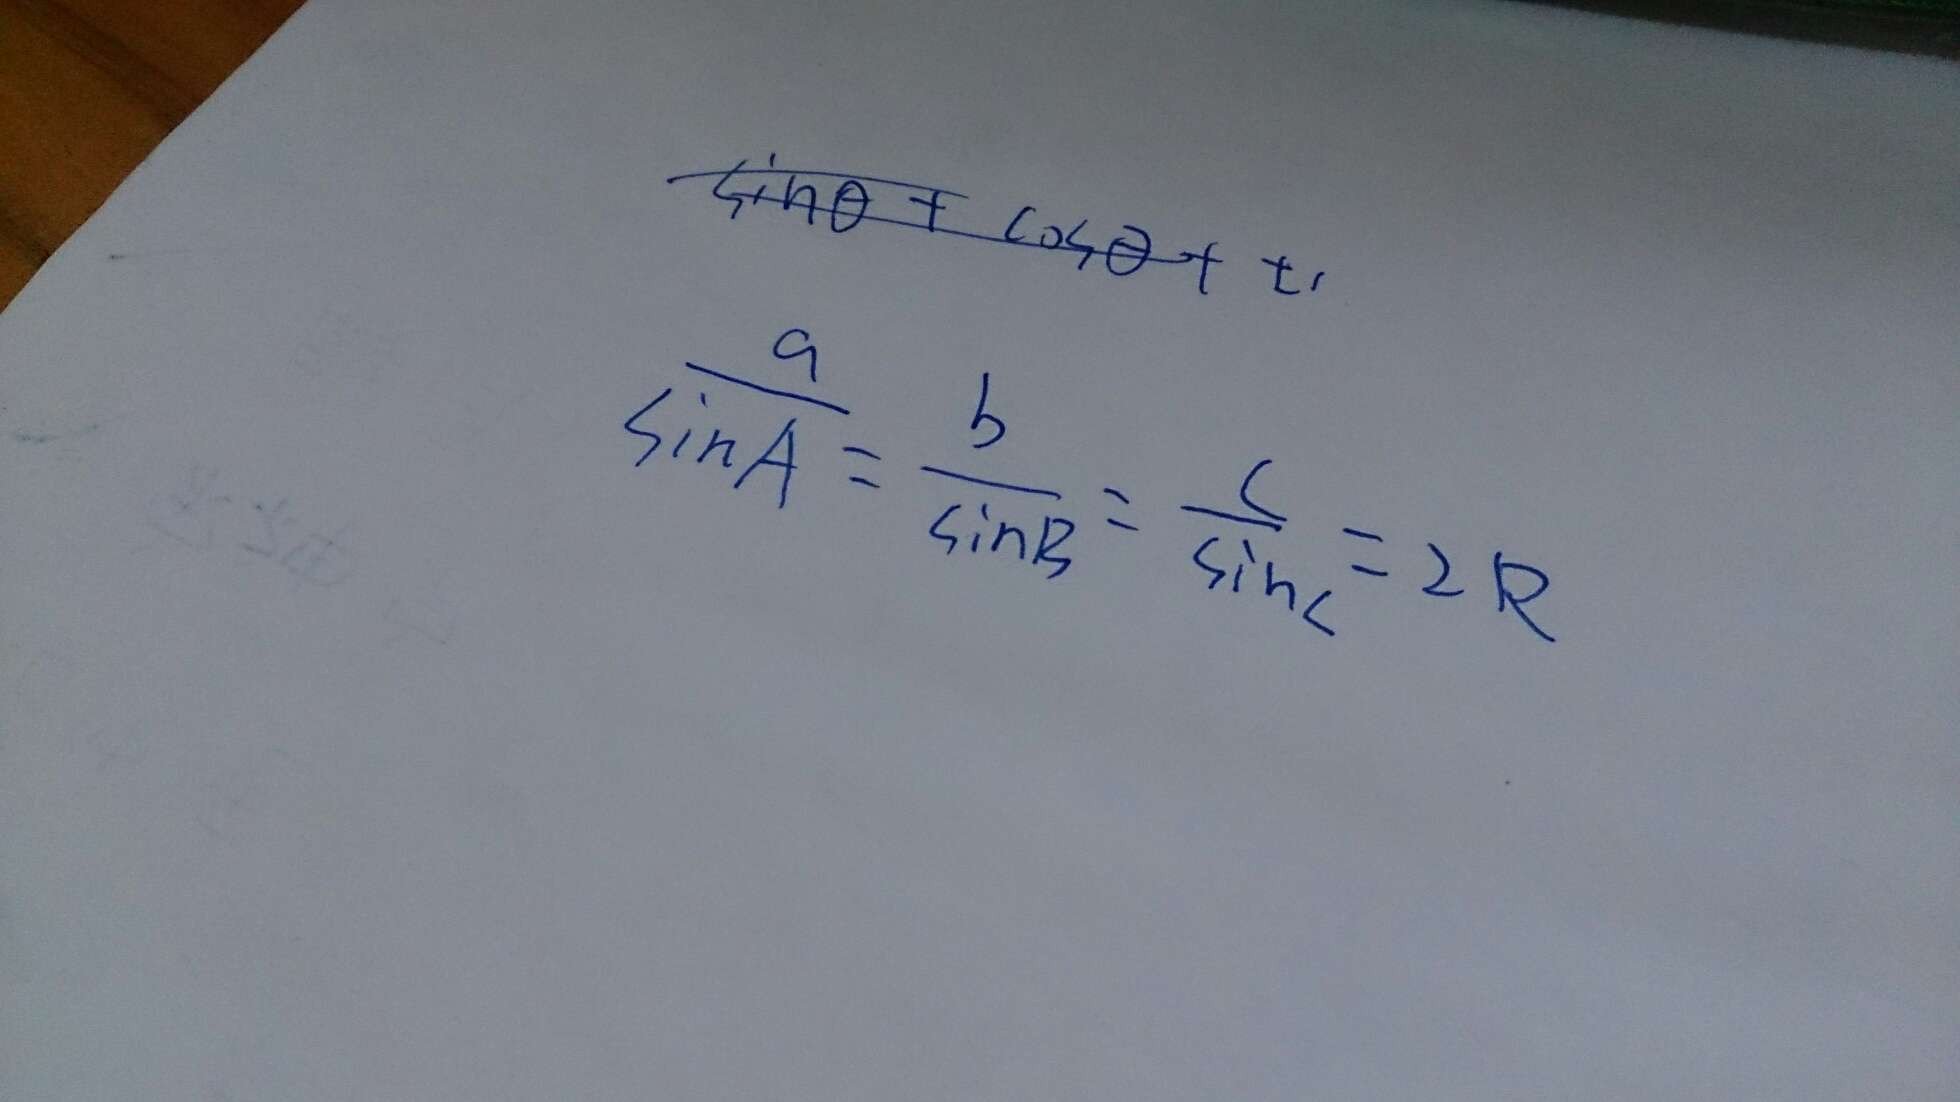 sinθ + cosθ + t
a/sinA = b/sinB = c/sinc = 2R